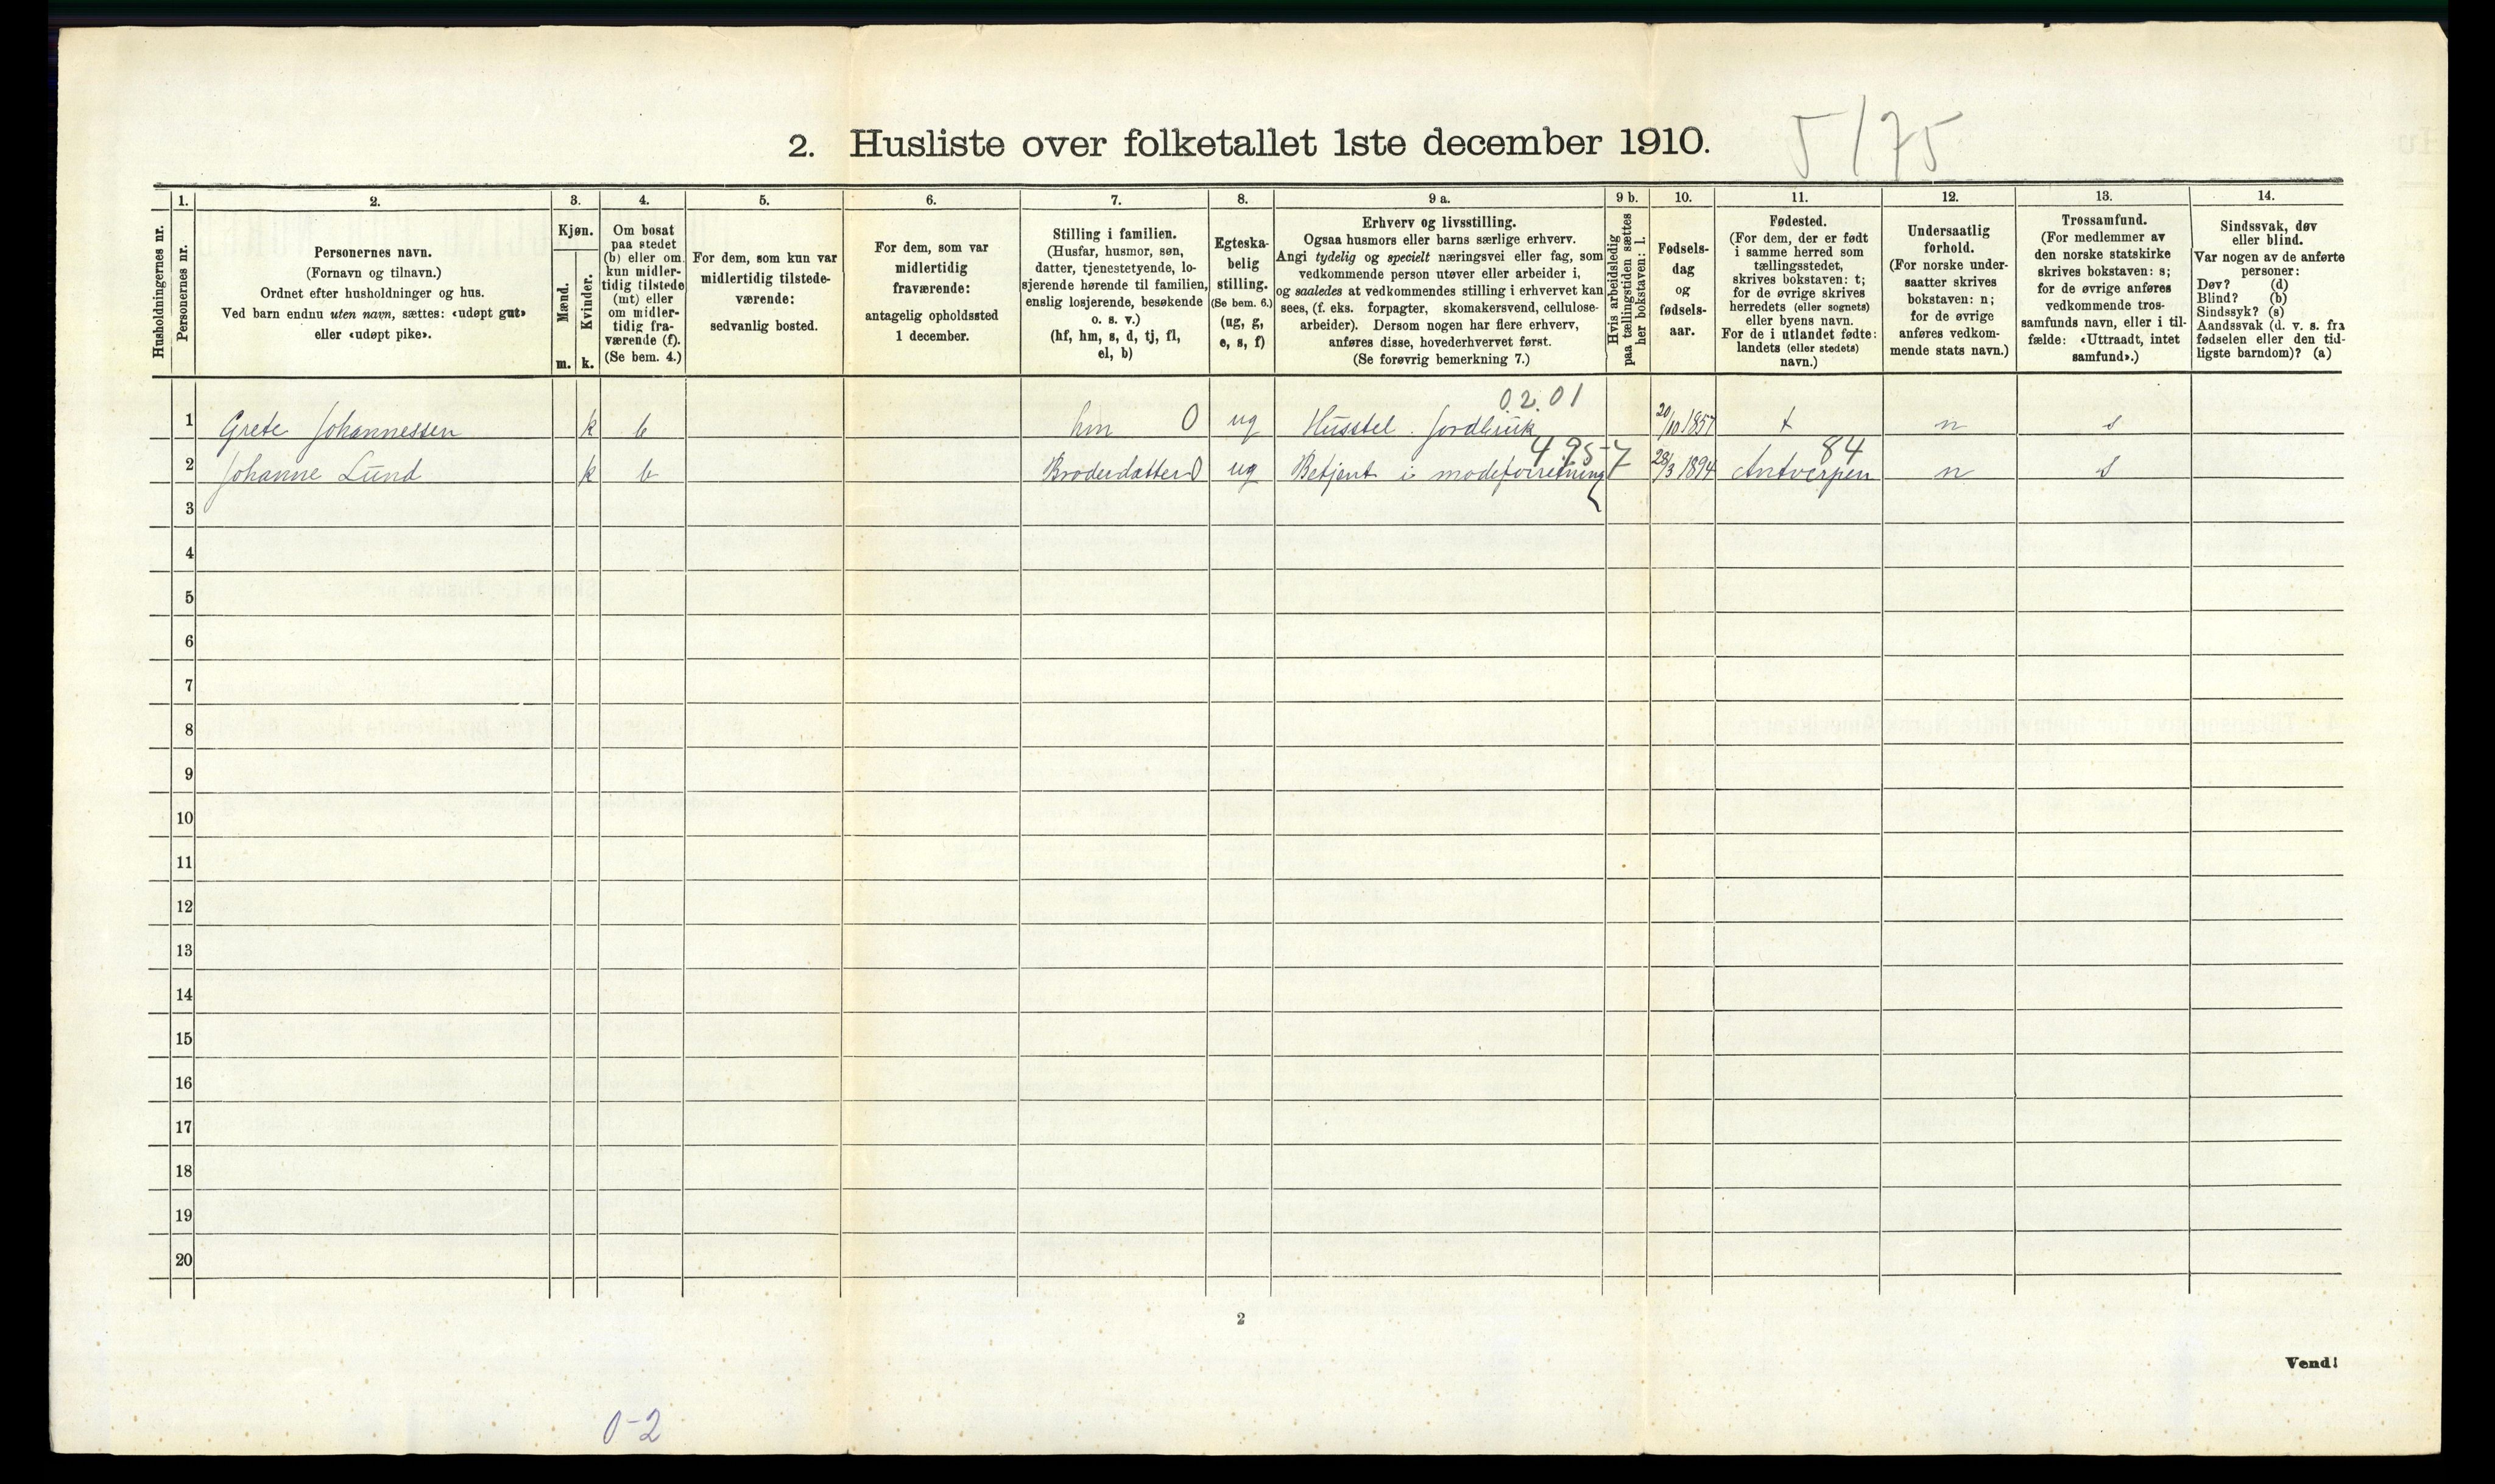 2. Husliste over folketallet 1ste december 1910.
5/75
Husholdningernes nr.
1.
Personernes nr.
2.
Personernes navn.
(Fornavn og tilnavn.)
Ordnet efter husholdninger og hus.
Ved barn endnu uten navn, sættes: «udøpt gut»
eller «udøpt pike».
3.
Kjøn.
Mænd.
m.
Kvinder.
k.
4.
Om bosat
paa stedet
(b) eller om
kun midler-
tidig tilstede
(mt) eller
om midler-
tidig fra-
værende (f).
(Se bem. 4.)
5.
For dem, som kun var
midlertidig tilstede-
værende:
sedvanlig bosted.
6.
For dem, som var
midlertidig
fraværende:
antagelig opholdssted
1 december.
7.
Stilling i familien.
(Husfar, husmor, søn,
datter, tjenestetyende, lo-
sjerende hørende til familien,
enslig losjerende, besøkende
o. s. v.)
(hf, hm, s, d, tj, fl,
el, b)
8.
Egteska-
belig
stilling.
(Se bem. 6.)
(ug, g,
e, s, f)
9 a.
Erhverv og livsstilling.
Ogsaa husmors eller barns særlige erhverv.
Angi tydelig og specielt næringsvei eller fag, som
vedkommende person utøver eller arbeider i,
og saaledes at vedkommendes stilling i erhvervet kan
sees, (f. eks. forpagter, skomakersvend, cellulose-
arbeider). Dersom nogen har flere erhverv,
anføres disse, hovederhvervet først.
(Se forøvrig bemerkning 7.)
9 b.
Hvis arbeidsledig
paa tællingstiden sættes
her bokstaven: l.
10.
Fødsels-
dag
og
fødsels-
aar.
11.
Fødested.
(For dem, der er født
i samme herred som
tællingsstedet,
skrives bokstaven: t;
for de øvrige skrives
herredets (eller sognets)
eller byens navn.
For de i utlandet fødte:
landets (eller stedets)
navn.)
12.
Undersaatlig
forhold.
(For norske under-
saatter skrives
bokstaven: n;
for de øvrige
anføres vedkom-
mende stats navn.)
13.
Trossamfund.
(For medlemmer av
den norske statskirke
skrives bokstaven: s;
for de øvrige anføres
vedkommende tros-
samfunds navn, eller i til-
fælde: «Uttraadt, intet
samfund».)
14.
Sindssvak, døv
eller blind.
Var nogen av de anførte
personer:
Døv? (d)
Blind? (b)
Sindssyk? (s)
Aandssvak (d. v. s. fra
fødselen eller den tid-
ligste barndom)? (a)
02.01
1 Grete Johannessen k b hm 0 ug Husstel. Jordbruk 20/10 1857 t n s
4.95-7 84
2 Johanne Lund k b Broderdatter 0 ug Betjent i modeforretning 28/3 1894 Antverpen n s
3
4
5
6
7
8
9
10
11
12
13
14
15
16
17
18
19
20
2
Vend!
0-2